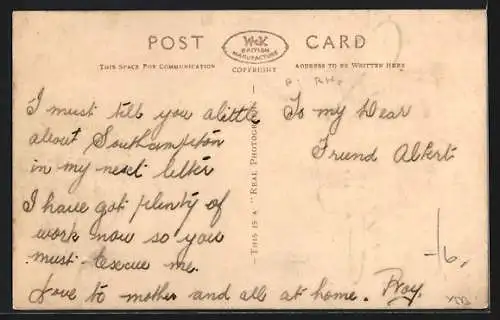 POST CARD
W&K
BRITISH
MANUFACTURE
COPYRIGHT
THIS SPACE FOR COMMUNICATION
ADDRESS TO BE WRITTEN HERE
THIS IS A "REAL PHOTOGRAPH
I must tell you alittle
about Southampton
in my next letter
I have got plenty of
work now so you
must Excuse me.
Love to mother and all at home. Roy.
To my Dear
Friend Albert
-/6.